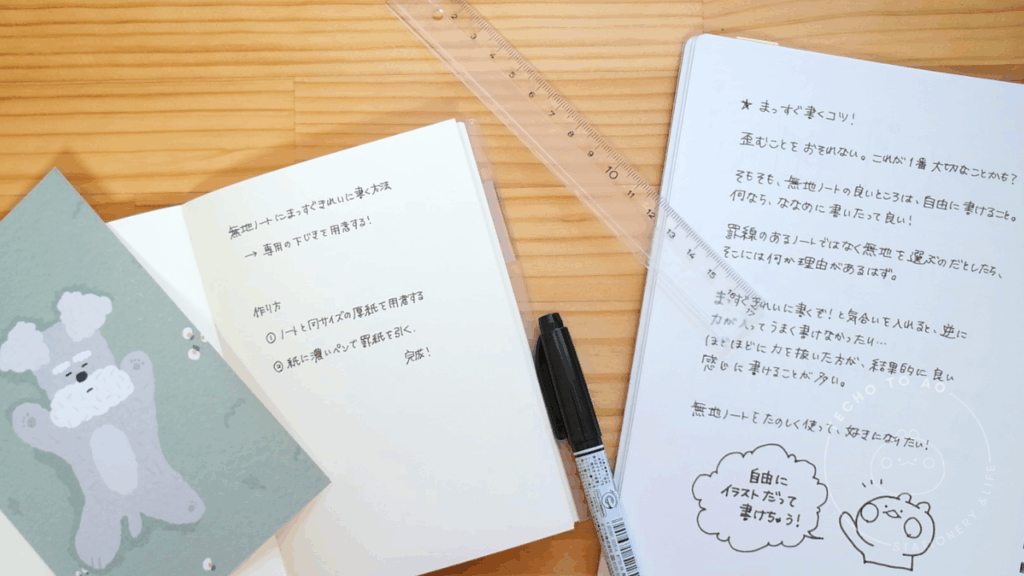 無地ノートにまっすぐきれいに書く方法
→ 専用の下じきを用意する!
作り方
① ノートと同サイズの厚紙を用意する
② 紙に濃いペンで罫紙を引く。
完成!
★ まっすぐ書くコツ!
歪むことをおそれない。これが1番大切なことかも?
そもそも、無地ノートの良いところは、自由に書けること。
何なら、ななめに書いたって良い!
罫線のあるノートではなく無地を選ぶのだとしたら、
そこには何か理由があるはず。
まっすぐきれいに書くぞ!と気合いを入れると、逆に
力が入ってうまく書けなかったり…
ほどほどに力を抜いた方が、結果的に良い
感じに書けることが多い。
無地ノートをたのしく使って、好きになりたい!
自由に
イラストだって
書けちゃう!
2 3 4 5 6 7 8 9 10 11 12 13 14 15
ECHO TO AO
STATIONERY & LIFE